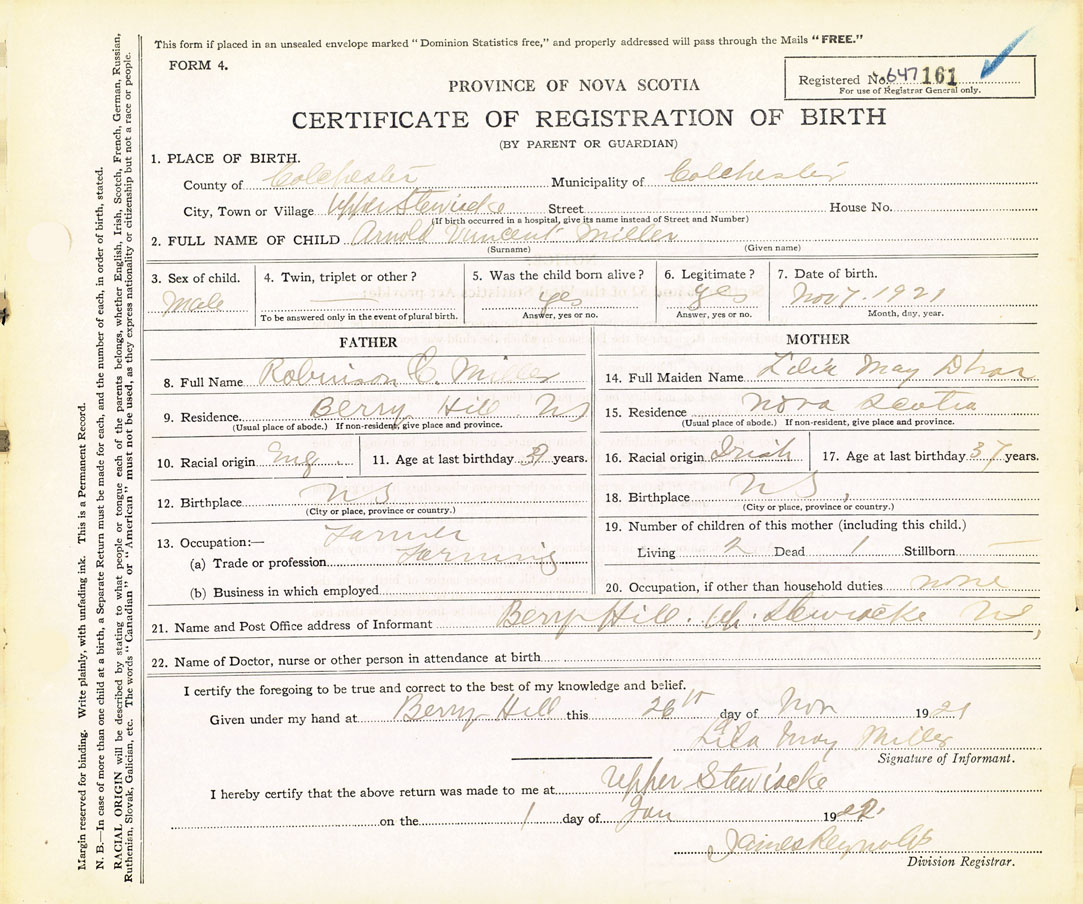 This form if placed in an unsealed envelope marked "Dominion Statistics free," and properly addressed will pass through the Mails "FREE."
FORM 4.
Registered No. 647 161
For use of Registrar General only.
PROVINCE OF NOVA SCOTIA
CERTIFICATE OF REGISTRATION OF BIRTH
(BY PARENT OR GUARDIAN)
1. PLACE OF BIRTH.
County of Colchester Municipality of Colchester
City, Town or Village Upper Stewiacke Street House No.
(If birth occurred in a hospital, give its name instead of Street and Number)
2. FULL NAME OF CHILD Arnold Vincent Miller
(Surname) (Given name)
3. Sex of child. 4. Twin, triplet or other? 5. Was the child born alive? 6. Legitimate? 7. Date of birth.
Male — yes yes Nov 7. 1921
To be answered only in the event of plural birth. Answer, yes or no. Answer, yes or no. Month, day, year.
FATHER
8. Full Name Robinson C. Miller
9. Residence. Berry Hill NS
(Usual place of abode.) If non-resident, give place and province.
10. Racial origin Eng. 11. Age at last birthday years.
12. Birthplace NS
(City or place, province or country.)
13. Occupation:— Farmer
(a) Trade or profession. Farming
(b) Business in which employed
MOTHER
14. Full Maiden Name May
15. Residence Nova Scotia
(Usual place of abode.) If non-resident, give place and province.
16. Racial origin Irish 17. Age at last birthday 37 years.
18. Birthplace NS,
(City or place, province or country.)
19. Number of children of this mother (including this child.)
Living 2 Dead 1 Stillborn —
20. Occupation, if other than household duties none
21. Name and Post Office address of Informant Berry Hill. Up. Stewiacke NS,
22. Name of Doctor, nurse or other person in attendance at birth
I certify the foregoing to be true and correct to the best of my knowledge and belief.
Given under my hand at Berry Hill this 26th day of Nov 1921
Lila May Miller
Signature of Informant.
I hereby certify that the above return was made to me at Upper Stewiacke
on the 1 day of Jan 1922
James Reynolds
Division Registrar.
Margin reserved for binding. Write plainly, with unfading ink. This is a Permanent Record.
N. B.—In case of more than one child at a birth, a Separate Return must be made for each, and the number of each, in order of birth, stated.
RACIAL ORIGIN will be described by stating to what people or tongue each of the parents belongs, whether English, Irish, Scotch, French, German, Russian,
Ruthenian, Slovak, Galician, etc. The words "Canadian" or "American" must not be used, as they express nationality or citizenship but not a race or people.